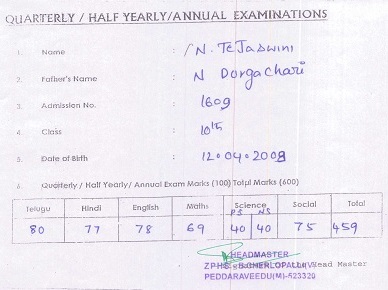 QUARTERLY / HALF YEARLY/ANNUAL EXAMINATIONS
1. Name : N. Tejaswini
2. Father's Name : N Durgachari
3. Admission No. : 1609
4. Class : 10th
5. Date of Birth : 12-04-2008
6. Quarterly / Half Yearly/ Annual Exam Marks (100) Total Marks (600)
Telugu Hindi English Maths Science Social Total
PS NS
80 77 78 69 40 40 75 459
HEADMASTER
ZPHS Head Master
PEDDARAVEEDU(M)-523320